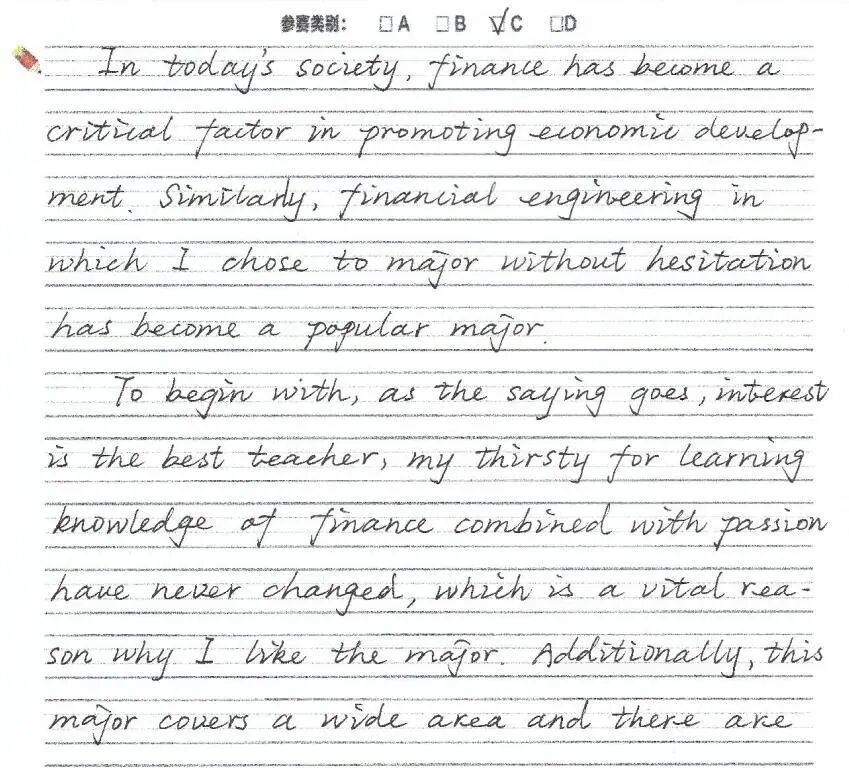 参赛类别: □A □B ☑C □D
In today's society, finance has become a
critical factor in promoting economic develop-
ment. Similarly, financial engineering in
which I chose to major without hesitation
has become a popular major.
To begin with, as the saying goes, interest
is the best teacher, my thirsty for learning
knowledge of finance combined with passion
have never changed, which is a vital rea-
son why I like the major. Additionally, this
major covers a wide area and there are